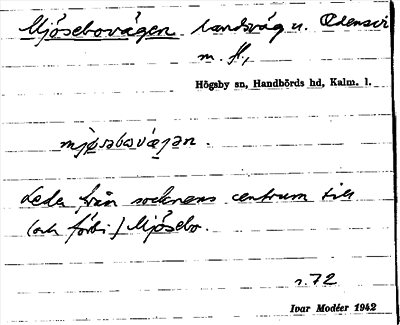 Mjösebovägen landsväg n. Odensvi
m. fl,
Högsby sn, Handbörds hd, Kalm. l.
Leder från socknens centrum till
(och förbi) Mjösebo.
s. 72
Ivar Modéer 1942